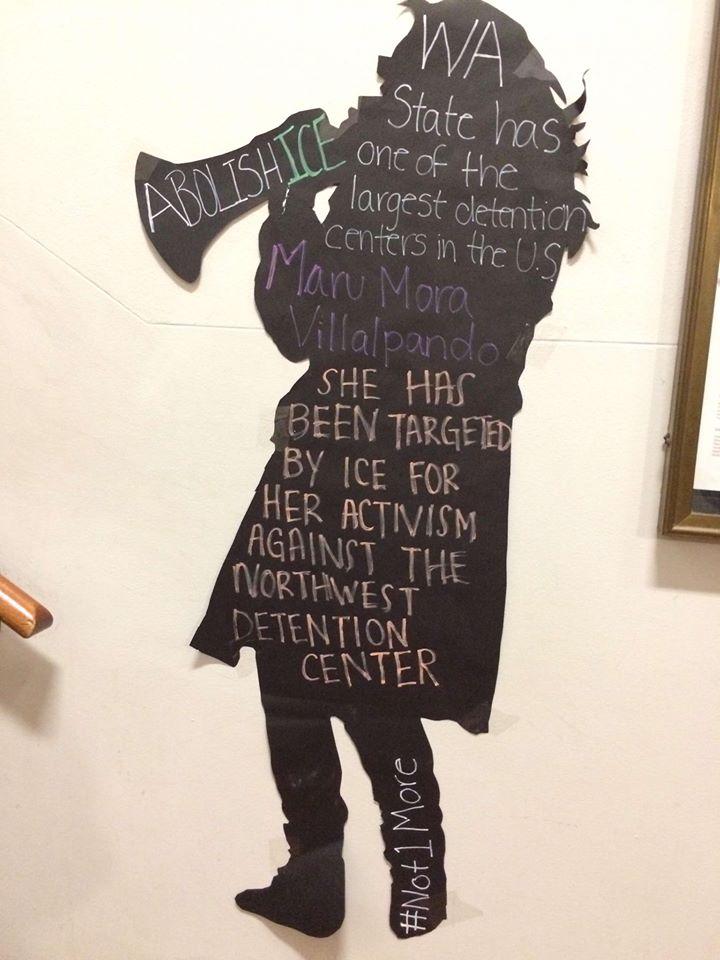 WA
State has
one of the
largest detention
centers in the U.S.
ABOLISH ICE
Maru Mora
Villalpando
SHE HAS
BEEN TARGETED
BY ICE FOR
HER ACTIVISM
AGAINST THE
NORTHWEST
DETENTION
CENTER
#Not1More